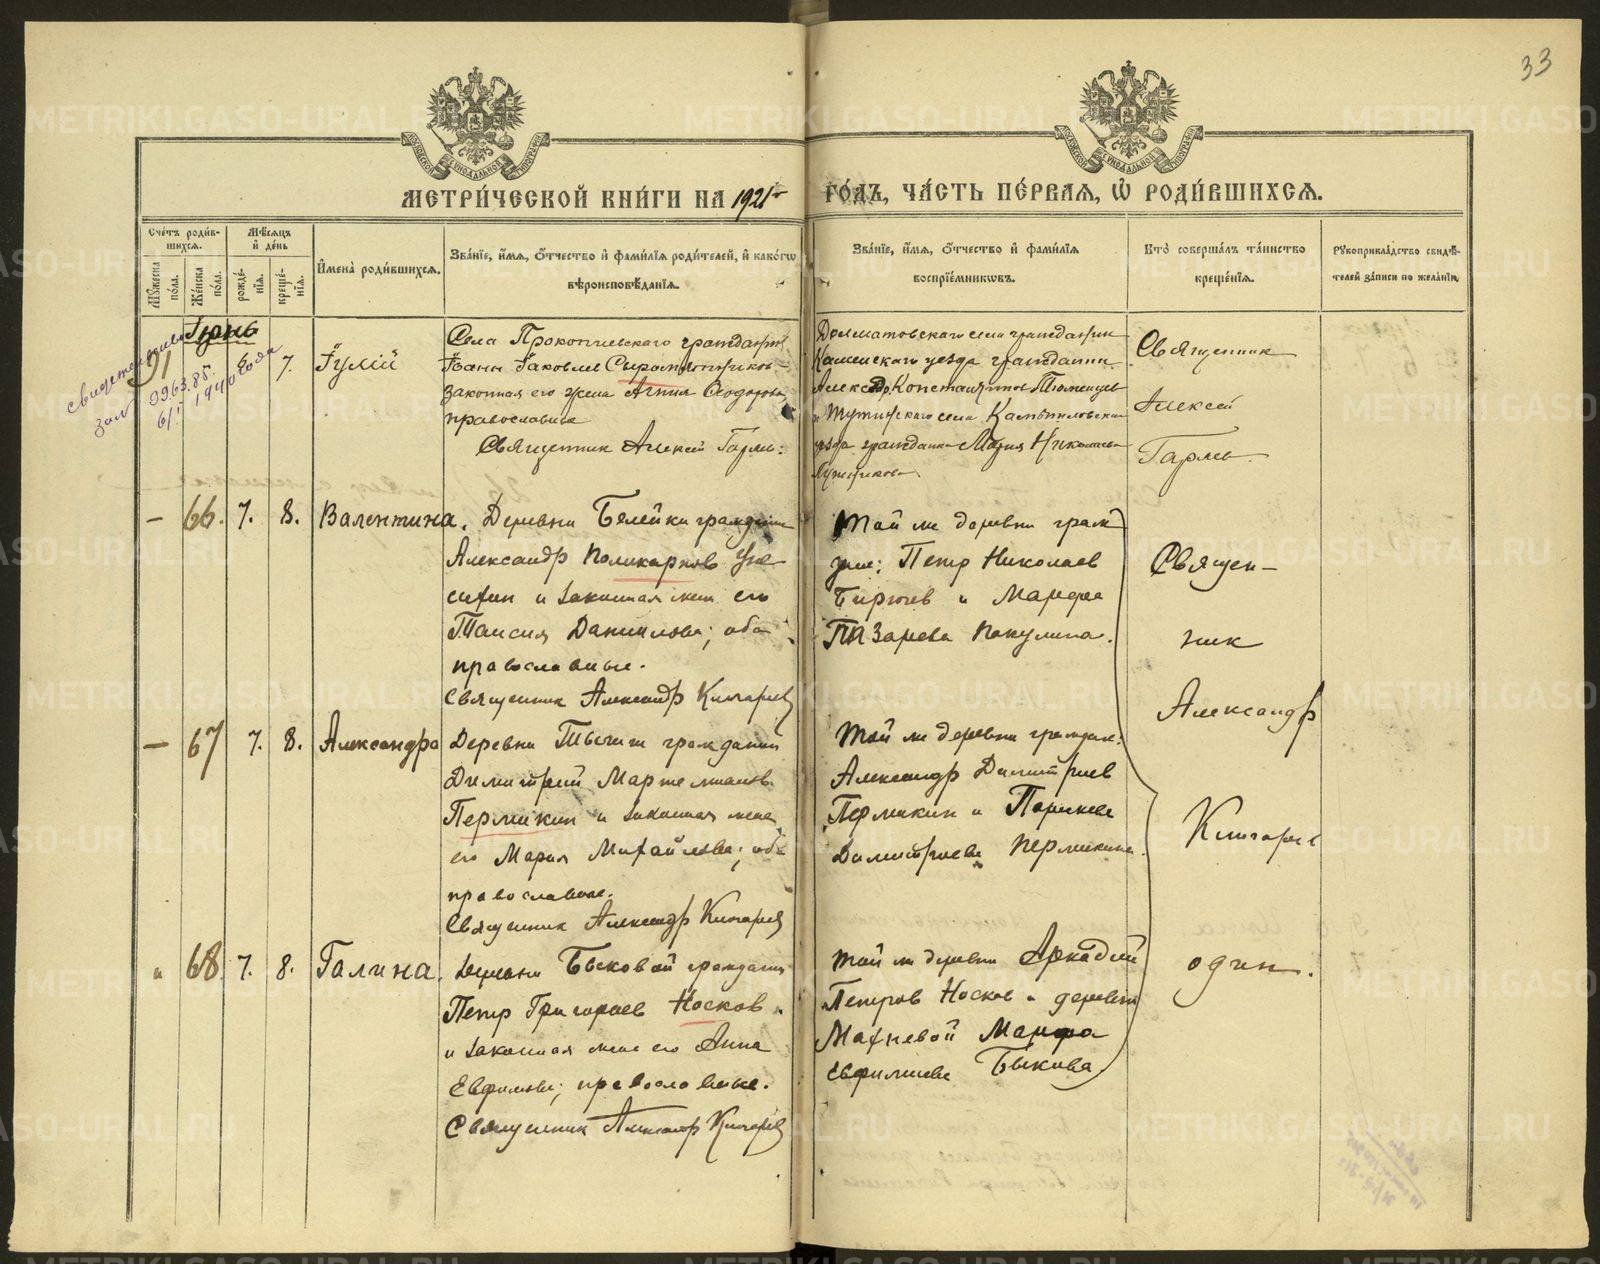 33
МОСКОВСКОЙ СѴНОДАЛЬНОЙ ТИПОГРАФІИ
МОСКОВСКОЙ СѴНОДАЛЬНОЙ ТИПОГРАФІИ
МЕТРИ́ЧЕСКОЙ КНИ́ГИ НА 1921 г
ГО́ДЪ, ЧА́СТЬ ПЕ́РВАЯ, Ѽ РОДИ́ВШИХСЯ.
Сче́тъ роди́в-
шихся.
Му́жеска по́ла.
Же́нска по́ла.
Мѣ́сяцъ
и҆ де́нь
рожде́-
нія.
креще́-
нія.
И҆мена̀ роди́вшихся.
Зва́ніе, и҆́мя, ѻ҆́тчество и҆ фами́лія роди́телей, и҆ како́гѡ
вѣроисповѣ́данія.
Зва́ніе, и҆́мя, ѻ҆́тчество и҆ фами́лія
воспріе́мниковъ.
Кто̀ соверша́лъ та́инство
креще́нія.
Рукоприкла́дство свидѣ́-
телей за́писи по жела́нію.
Іюнь
91
6.
7.
Іулій
Села Прокопиевского гражданин
Іоанн Іаковлев Сыропятников
законная его жена Агния Феодорова
православные
Священник Алексей Гарль.
Долматовского села гражданин
Каменского уезда гражданин
Александр Константинов Тюменцев
села Камышловского
уезда гражданка Мария Николаева
Священник
Алексей
Гарль
— 66. 7. 8. Валентина.
Деревни Белейки граждан
Александр Поликарпов
и законная жена его
Таисия Даниилова; оба
православные.
Священник Александр Ключарев
Той же деревни граж
дане: Петр Николаев
Бирючев и Марфа
Лазарева Пакулина.
Священ-
ник
Александр
Ключарев
один.
— 67 7. 8. Александра
Деревни гражданин
Димитрий
Пермикин и законная жена
его Мария Михайлова; оба
православные.
Священник Александр Ключарев
Той же деревни граждан:
Александр Димитриев
Пермикин и
Димитриева Пермикина.
" 68. 7. 8. Галина.
Деревни Быковой гражданин
Петр Григориев Носков
и законная жена его Анна
Евфимова; православные.
Священник Александр Ключарев
Той же деревни Аркадий
Петров Носков и деревни
Махневой Марфа
Евфимиева Быкова.
METRIKI.GASO-URAL.RU